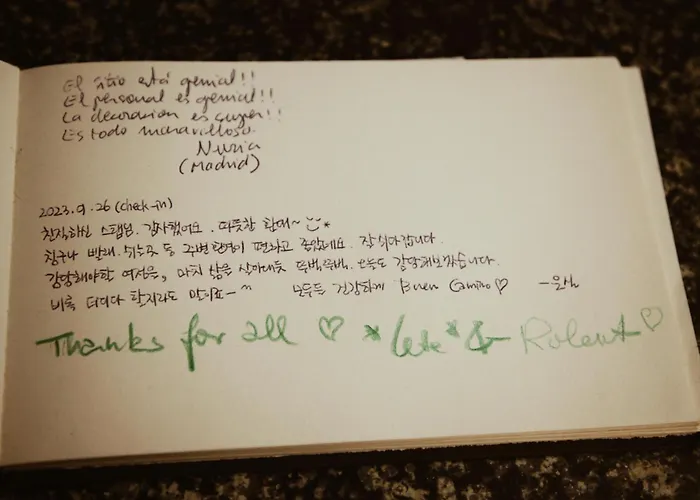 El sitio está genial!!
El personal es genial!!
La decoración es super!!
Es todo maravilloso.
Nuria
(Madrid)
2023.9.26 (check-in)
친절하신 스탭님. 감사했어요. 따뜻한 환대~
침구나 빨래, 쉬는곳 등 주변 환경이 편하고 좋았네요. 잘 쉬다 갑니다.
감당해야할 여정을, 마치 삶을 살아내듯 뚜벅뚜벅. 오늘도 감당해보겠습니다.
비록 더디다 할지라도 말이죠~^^ 모두들 건강하게 Buen Camino ♡
Thanks for all ♡ & ♡